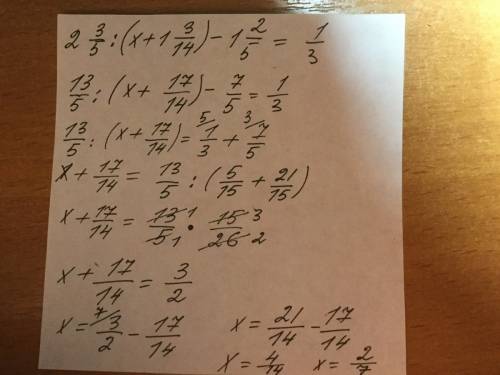 2 3/5 : (x + 1 3/14) - 1 2/5 = 1/3
13/5 : (x + 17/14) - 7/5 = 1/3
13/5 : (x + 17/14) = 5/ 1/3 + 3/ 7/5
x + 17/14 = 13/5 : (5/15 + 21/15)
x + 17/14 = 13/5 1 1 • 15/26 3 2
x + 17/14 = 3/2
x = 7/ 3/2 - 17/14
x = 21/14 - 17/14
x = 4/14 x = 2/7